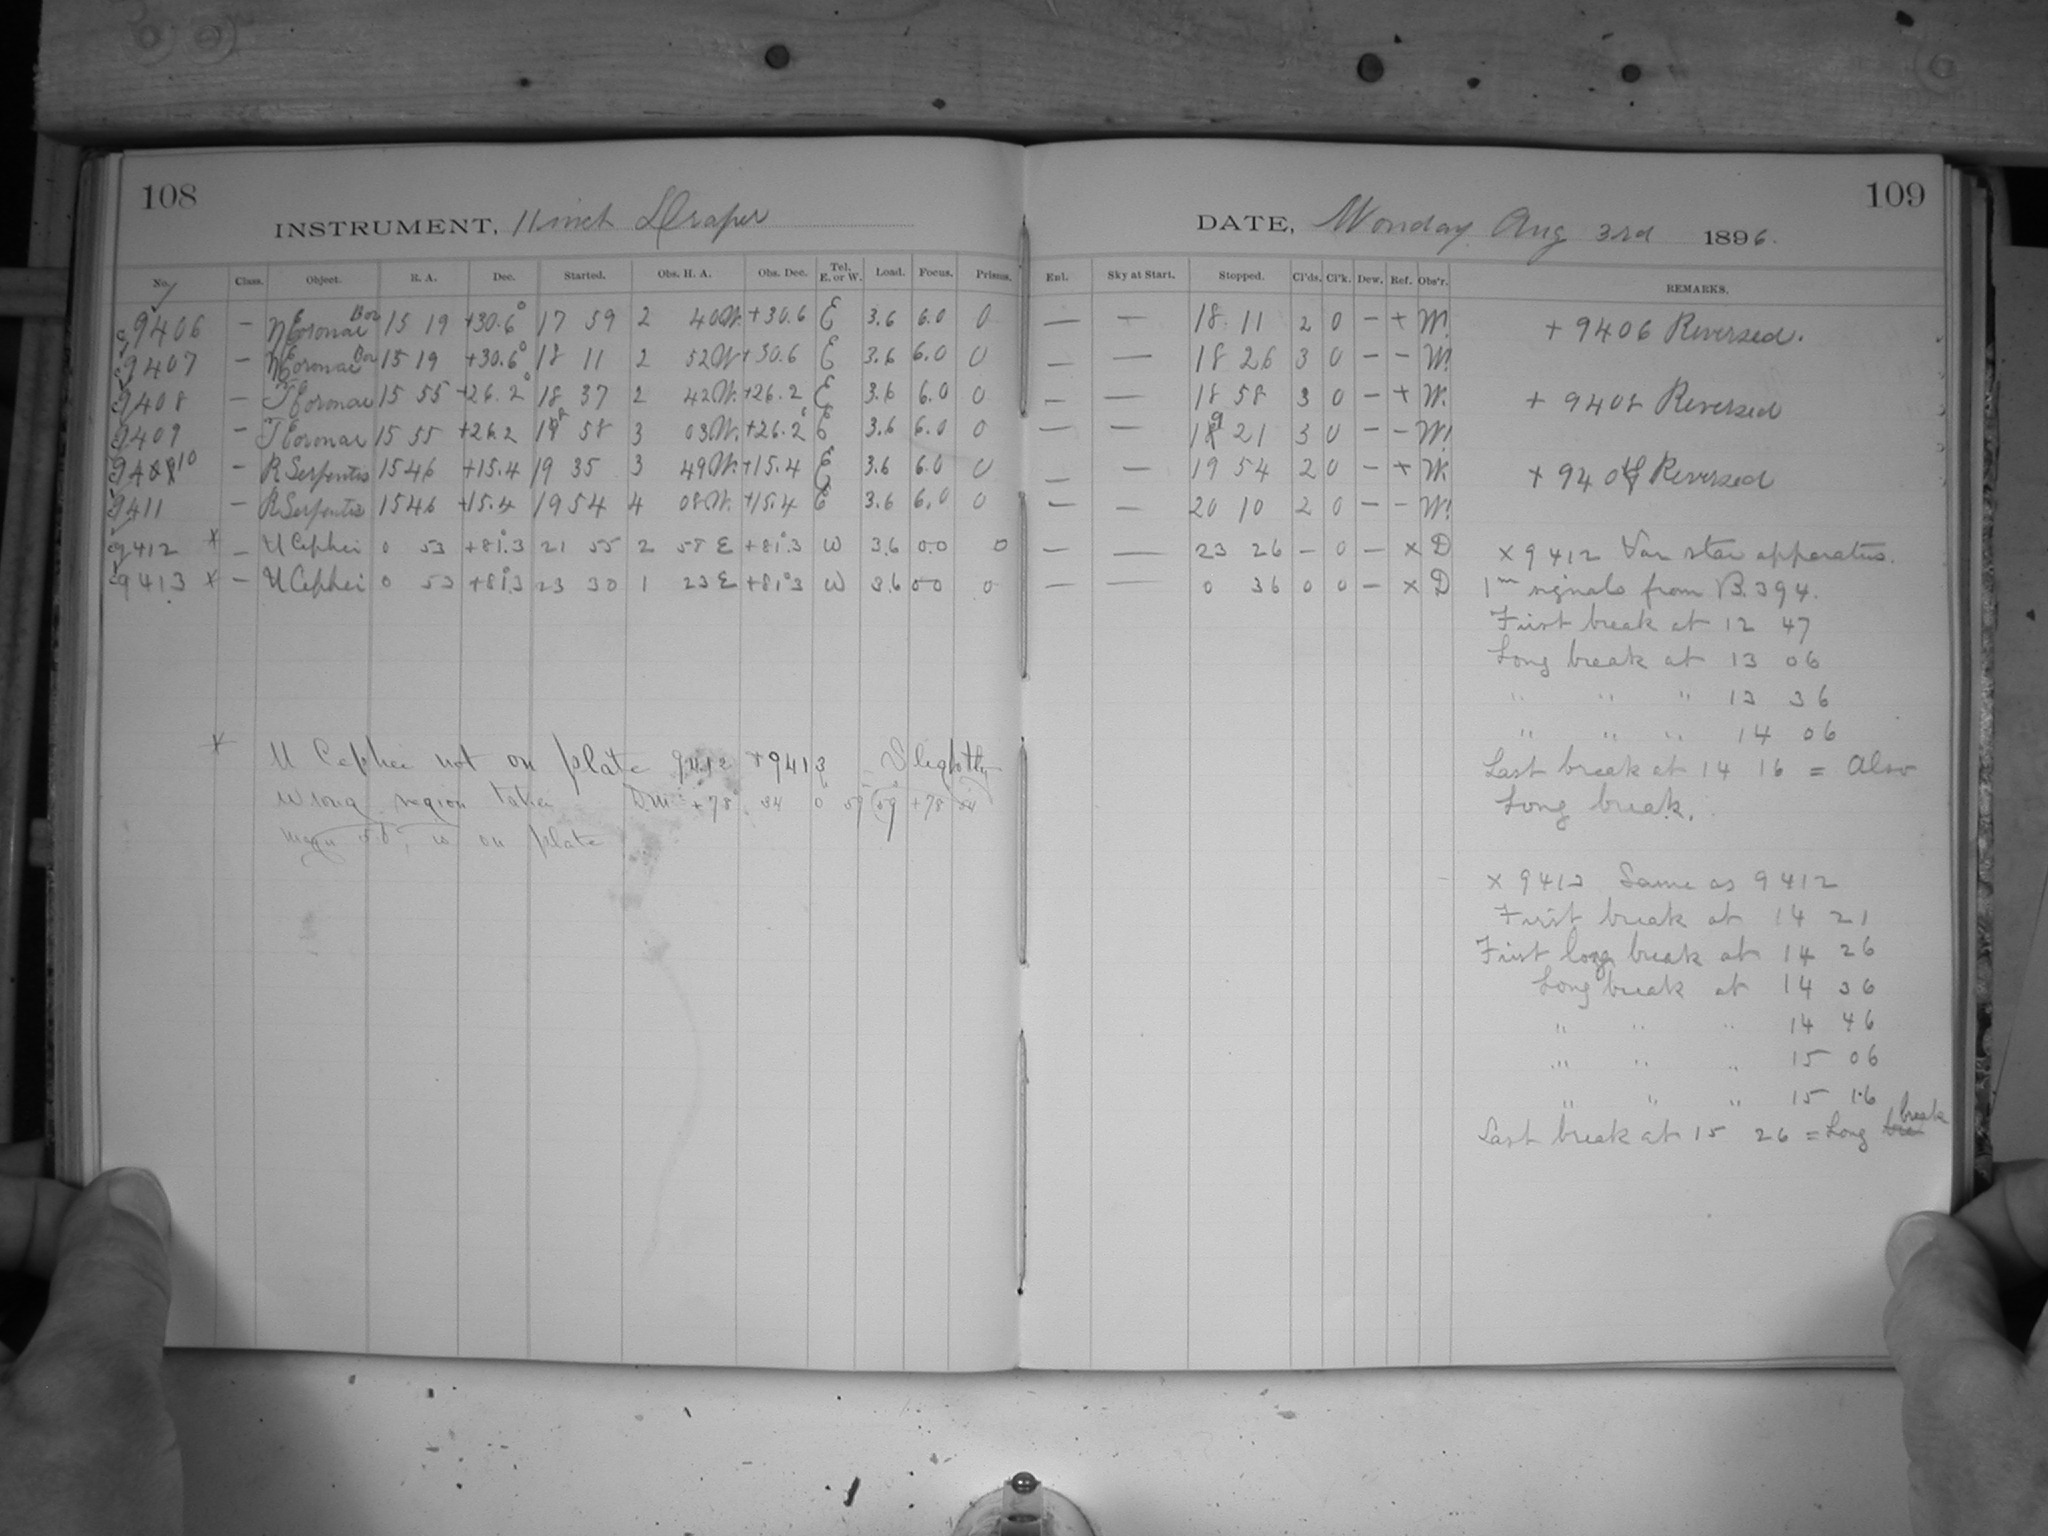 108
INSTRUMENT, 11 inch Draper
No. Class. Object. R. A. Dec. Started. Obs. H. A. Obs. Dec. Tel. E. or W. Load. Focus. Prisms.
9406 — Coronae Bor 15 19 +30.6° 17 59 2 40 W. +30.6 E 3.6 6.0 0
9407 — Coronae Bor 15 19 +30.6° 18 11 2 52 W +30.6 E 3.6 6.0 0
9408 — T Coronae 15 55 +26.2° 18 37 2 42 W. +26.2 E 3.6 6.0 0
9409 — T Coronae 15 55 +26.2 18 58 3 03 W. +26.2 E 3.6 6.0 0
9410 — R Serpentis 15 46 +15.4 19 35 3 49 W. +15.4 E 3.6 6.0 0
9411 — R Serpentis 15 46 +15.4 19 54 4 08 W. +15.4 E 3.6 6.0 0
9412 x — U Cephei 0 53 +81°.3 21 55 2 58 E +81°.3 W 3.6 0.0 0
9413 x — U Cephei 0 53 +81°.3 23 30 1 23 E +81°.3 W 3.6 0.0 0
x U Cephei not on plate 9412 + 9413 Slightly
wrong region taken DM +78° 34 0 59 +78 34
magn is on plate
109
DATE, Monday Aug 3rd 1896.
Enl. Sky at Start. Stopped. Cl'ds. Cl'k. Dew. Ref. Obs'r. REMARKS.
— — 18 11 2 0 — + W. + 9406 Reversed.
— — 18 26 3 0 — — W.
— — 18 58 3 0 — + W. + 9408 Reversed
— — 19 21 3 0 — — W.
— — 19 54 2 0 — + W. + 940 Reversed
— — 20 10 2 0 — — W.
— — 23 26 — 0 — x D x 9412 Var star apparatus.
— — 0 36 0 0 — x D 1m signals from B.394.
First break at 12 47
Long break at 13 06
" " " 13 36
" " " 14 06
Last break at 14 16 = Also
Long break.
x 9413 Same as 9412
First break at 14 21
First long break at 14 26
Long break at 14 36
" " " 14 46
" " " 15 06
" " " 15 16
Last break at 15 26 = Long break